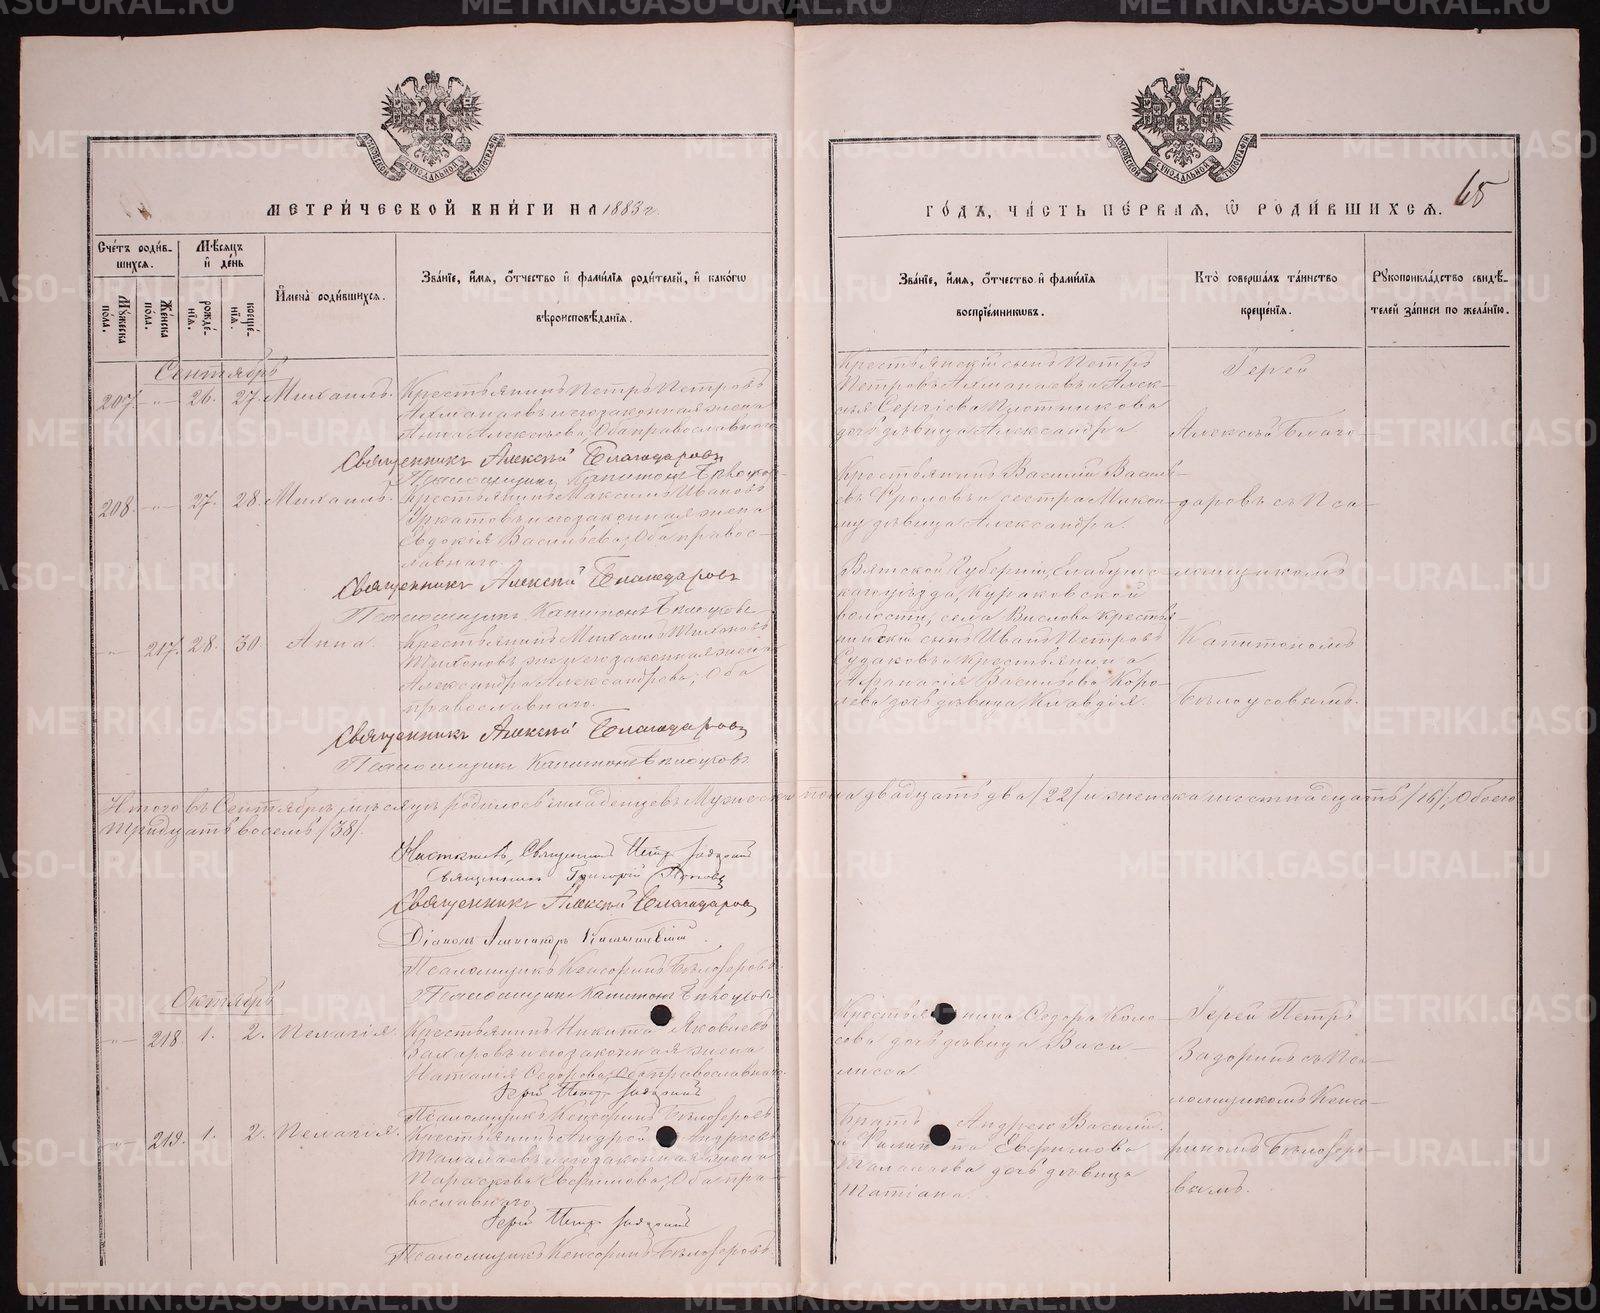 МЕТРИ́ЧЕСКОЙ КНИ́ГИ НА 1883 г.
Сче́тъ роди́в-
шихся.
Мѣ́сяцъ
и҆ де́нь
Мꙋ́жеска
по́ла.
Же́нска
по́ла.
рожде́-
нїя.
креще́-
нїя.
И҆мена̀ роди́вшихся.
Зва́нїе, и҆́мя, ѻ҆́тчество и҆ фами́лїя роди́телей, и҆ како́гѡ
вѣроисповѣ́данїя.
Сентябрь
207. " 26. 27. Михаилъ.
Крестьянинъ Петръ Петровъ
Ахманаевъ и его законная жена
Анна Алексѣева, Оба православнаго
Священникъ Алексѣй Благодаровъ
Псаломщикъ Капитонъ Бѣлоусовъ
208. " 27. 28. Михаилъ.
Крестьянинъ Максимъ Ивановъ
и его законная жена
Евдокія Васильева; Оба правос-
лавнаго.
Священникъ Алексѣй Благодаровъ
Псаломщикъ Капитонъ Бѣлоусовъ
" 217. 28. 30. Анна.
Крестьянинъ Михаилъ Тихоновъ
Тихоновъ же и его законная жена
Александра Александрова; Оба
православнаго.
Священникъ Алексѣй Благодаровъ
Псаломщикъ Капитонъ Бѣлоусовъ
Итого въ Сентябрѣ мѣсяцѣ родилось младенцевъ Мужеска пола двадцать два /22/ и женска шестнадцать /16/; Обоего
тридцать восемь /38/.
Священникъ Петръ Задоринъ
Священникъ Григорій Поповъ
Священникъ Алексѣй Благодаровъ
Діаконъ Александръ
Псаломщикъ Кенсоринъ Бѣлозеровъ
Псаломщикъ Капитонъ Бѣлоусовъ
Октябрь
" 218. 1. 2. Пелагія.
Крестьянинъ Никита Яковлевъ
Захаровъ и его законная жена
Наталія Ѳедорова; Оба православнаго.
Іерей Петръ Задоринъ
Псаломщикъ Кенсоринъ Бѣлозеровъ
" 219. 1. 2. Пелагія.
Крестьянинъ Андрей Андреевъ
Талалаевъ и его законная жена
Параскева Евфимова; Оба пра-
вославнаго
Іерей Петръ Задоринъ
Псаломщикъ Кенсоринъ Бѣлозеровъ
ГО́ДЪ, ЧА́СТЬ ПЕ́РВАЯ, Ѡ҆ РОДИ́ВШИХСЯ.
65
Зва́нїе, и҆́мя, ѻ҆́тчество и҆ фами́лїя
воспрїе́мникѡвъ.
Кто̀ соверша́лъ та́инство
креще́нїя.
Рꙋкоприкла́дство свидѣ́-
телей за́писи по жела́нїю.
Крестьянскій сынъ Петръ
Петровъ Ахманаевъ и Алек-
сѣя Сергіева Плотникова
дочь дѣвица Александра.
Крестьянинъ Василій Василь-
евъ Фроловъ и сестра Макси-
му дѣвица Александра.
Вятской Губерніи, Елабужс-
каго уѣзда, Кураковской
волости, села крестья-
нинскій сынъ Иванъ Петровъ
Судаковъ и крестьянина
Афанасія Васильева Коро-
лева дочь дѣвица Клавдія.
Іерей
Алексѣй Благо-
даровъ съ Пса-
ломщикомъ
Капитономъ
Бѣлоусовымъ.
Крестьянина Ѳедора Коло-
сова дочь дѣвица Васи-
лисса
Братъ Андрею Василій
и Евфимова
Талалаева дочь дѣвица
Татіана.
Іерей Петръ
Задоринъ съ Пса-
ломщикомъ Кенсо-
риномъ Бѣлозеро-
вымъ.
METRIKI.GASO-URAL.RU